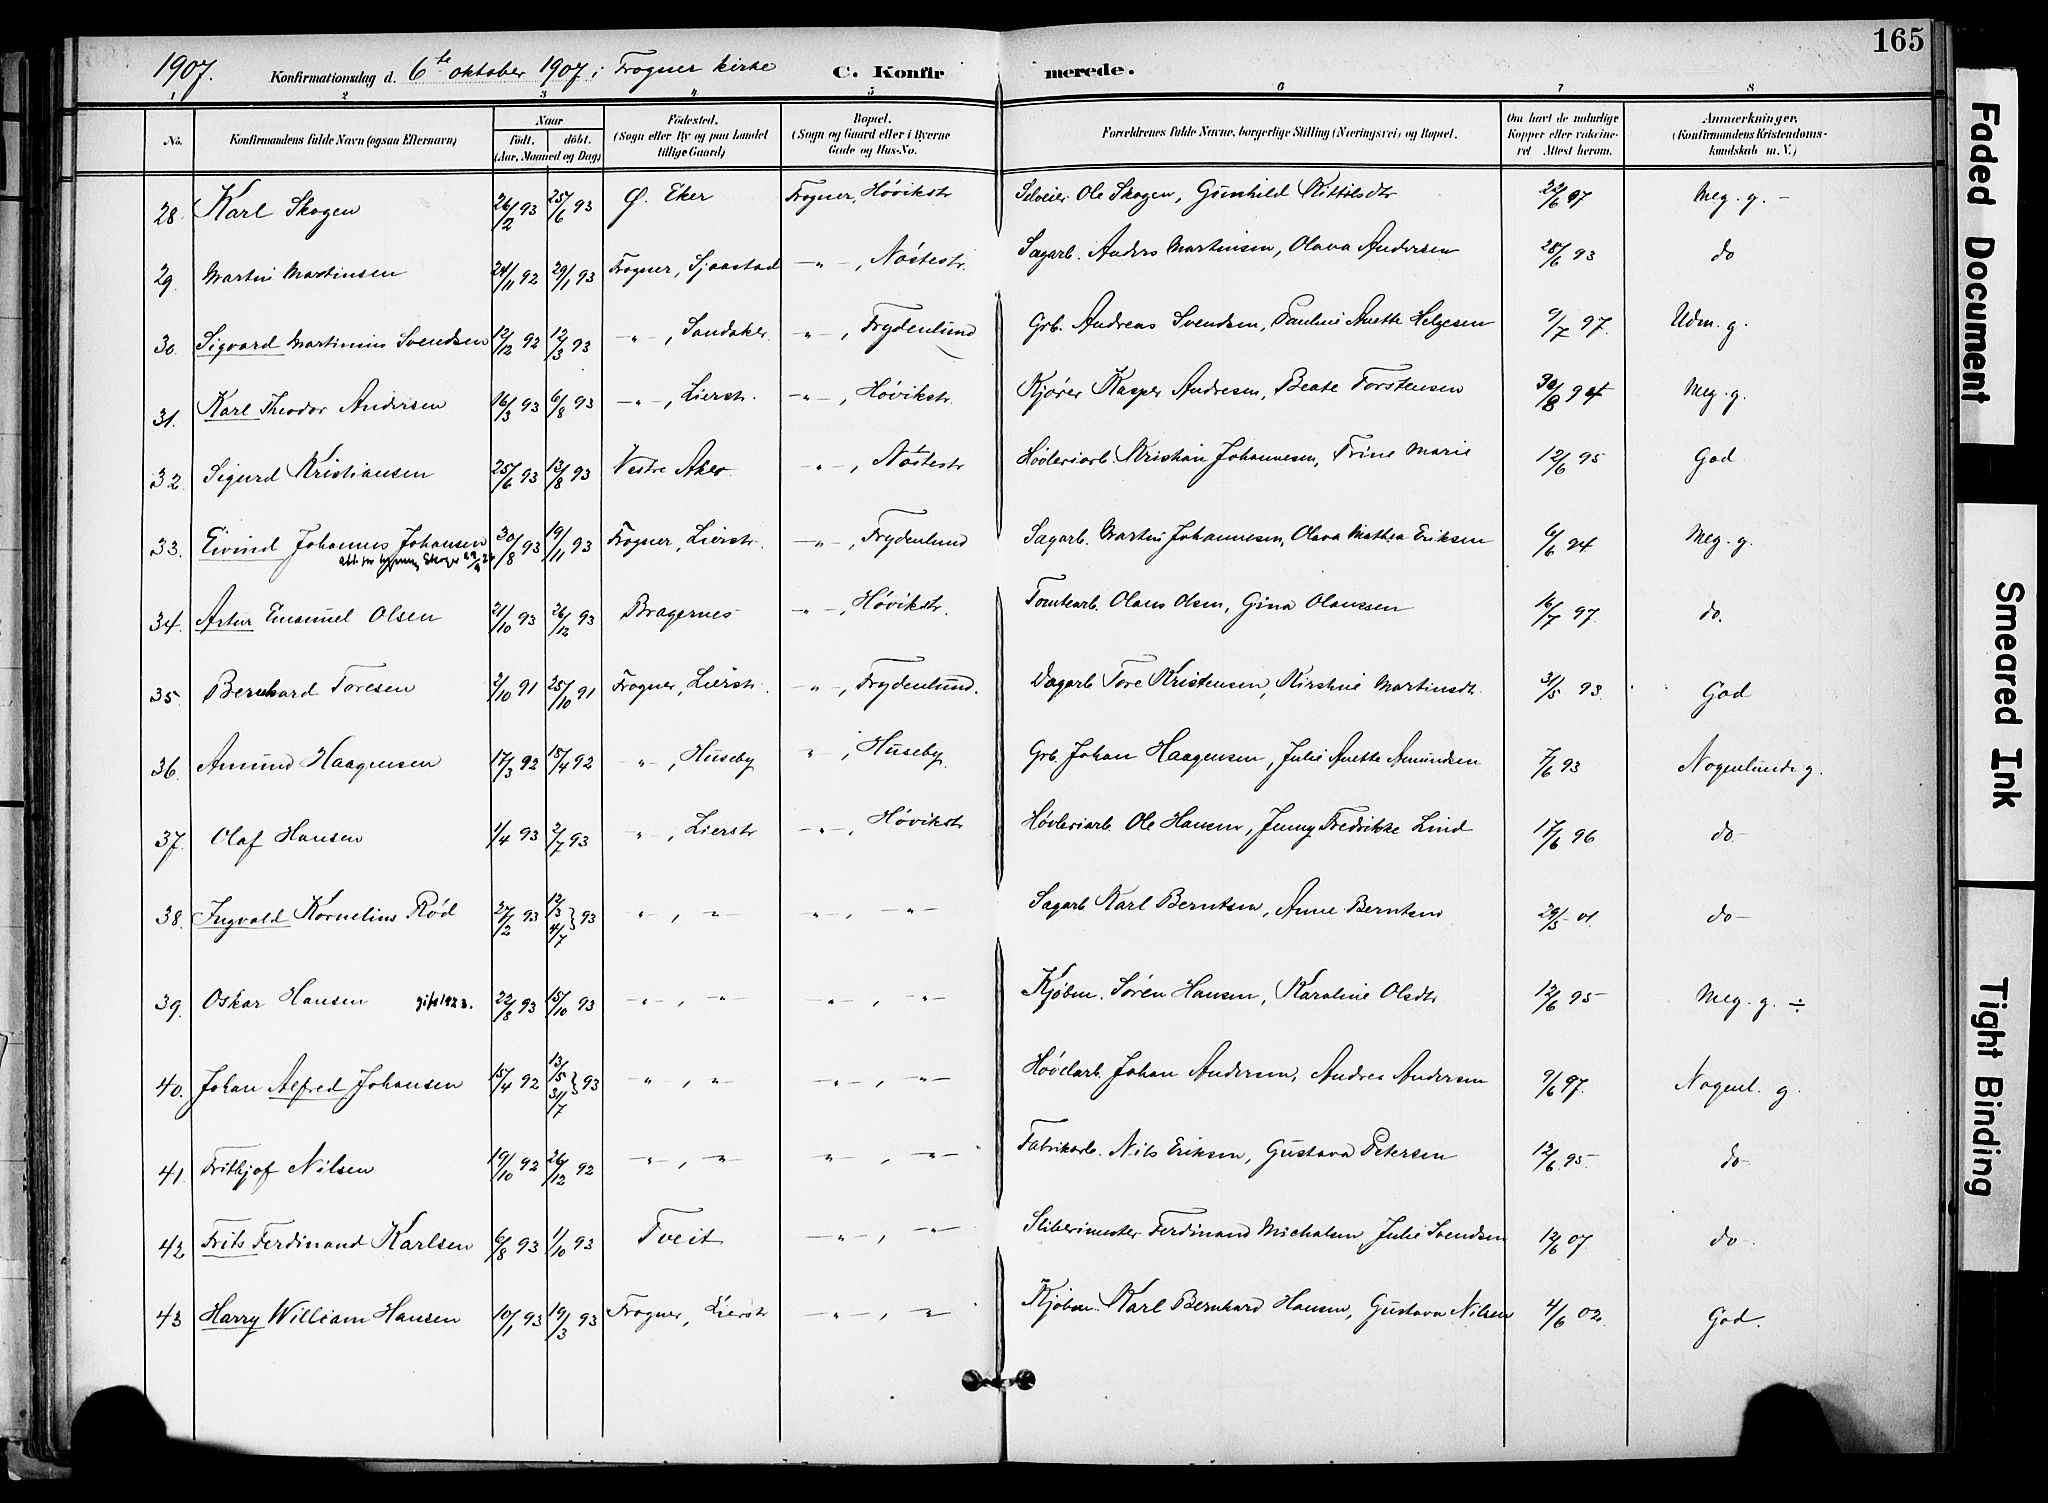 165
1907. Konfirmationsdag d. 6te oktober 1907 i Frogner kirke C. Konfirmerede.
1 2 3 4 5 6 7 8
No. Konfirmandens fulde Navn (ogsaa Efternavn) Naar født. døbt. (Aar, Maaned og Dag) Fødested. (Sogn eller By og paa Landet tillige Gaard) Bopæl. (Sogn og Gaard eller i Byerne Gade og Hus-No. Forældrenes fulde Navne, borgerlige Stilling (Næringsvei) og Bopæl. Om havt de naturlige Kopper eller vaccineret Attest herom. Anmærkninger, (Konfirmandens Kristendomskundskab m. V.)
28. Karl Skogen 26/2 93 25/6 93 Ø. Eker Frogner, Høvikstr Selveier Ole Skogen, Gunhild Kittilsdtr 22/6 97 Meg. g. –
29. Martin Martinsen 24/11 92 29/1 93 Frogner, Sjaastad –"–, Nøstestr. Sagarb. Anders Martinsen, Olava Andersen 28/6 93 do
30. Sigvard Martinius Svendsen 12/12 92 12/3 93 –"–, Sandaker –"–, Frydenlund Grb. Andreas Svendsen, Pauline Anette Helgesen 9/7 97. Udm. g.
31. Karl Theodor Andersen 16/3 93 6/8 93 –"–, Lierstr. –"–, Høvikstr. Kjører Kasper Andresen, Beate Torstensen 30/8 94 Meg. g.
32. Sigurd Kristiansen 25/6 93 13/8 93 Vestre Aker –"–, Nøstestr Høvleriarb. Kristian Johannesen, Trine Marie 12/6 95 God
33. Eivind Johannes Johansen 30/8 93 19/11 93 Frogner, Lierstr. –"–, Frydenlund Sagarb. Martin Johannesen, Olava Mathea Eriksen 6/6 94 Meg. g.
34. Artur Emanuel Olsen 21/10 93 26/12 93 Bragernes –"–, Høvikstr. Tomtearb. Olaus Olsen, Gina Olaussen 16/7 97. do.
35. Bernhard Toresen 2/10 91 25/10 91 Frogner, Lierstr. –"–, Frydenlund. Dagarb Tore Kristensen, Kirstine Martinsdt. 31/5 93 God
36. Amund Haagensen 17/3 92 18/4 92 –"–, Huseby –"–, Huseby. Grb. Johan Haagensen, Julie Anette Amundsen 7/6 93 Nogenlunde g.
37. Olaf Hansen 1/4 93 2/7 93 –"–, Lierstr –"–, Høvikstr Høvleriarb. Ole Hansen, Jenny Fredrikke Lind 17/6 96 do
38. Ingvald Kornelius Rød 27/2 93 12/3 4/7 } 93 –"–, –"– –"–, –"– Sagarb Karl Berntsen, Anne Berntsen 29/5 01 do
39. Oskar Hansen gift 1923. 22/8 93 15/10 93 –"–, –"– –"–, –"– Kjøbm. Søren Hansen, Karoline Olsdtr 12/6 95 Meg. g. ÷
40. Johan Alfred Johansen 15/4 92 13/5 31/7 } 93 –"–, –"– –"–, –"– Høvelarb. Johan Andersen, Andrea Andersen 9/6 97. Nogenl. g.
41. Frithjof Nilsen 19/10 92 26/12 92 –"–, –"– –"–, –"– Fabrikarb. Nils Eriksen, Gustava Petersen 12/6 95 do
42 Frits Ferdinand Karlsen 6/8 93 1/10 93 Tveit –"–, –"– Sliberimester Ferdinand Michalsen, Julie Svendsen 12/6 07 do
43 Harry William Hansen 10/1 93 19/3 93 Frogner, Lierstr –"–, –"– Kjøbm. Karl Bernhard Hansen, Gustava Nilsen 4/6 02. God.
Faded Document
Smeared Ink
Tight Binding